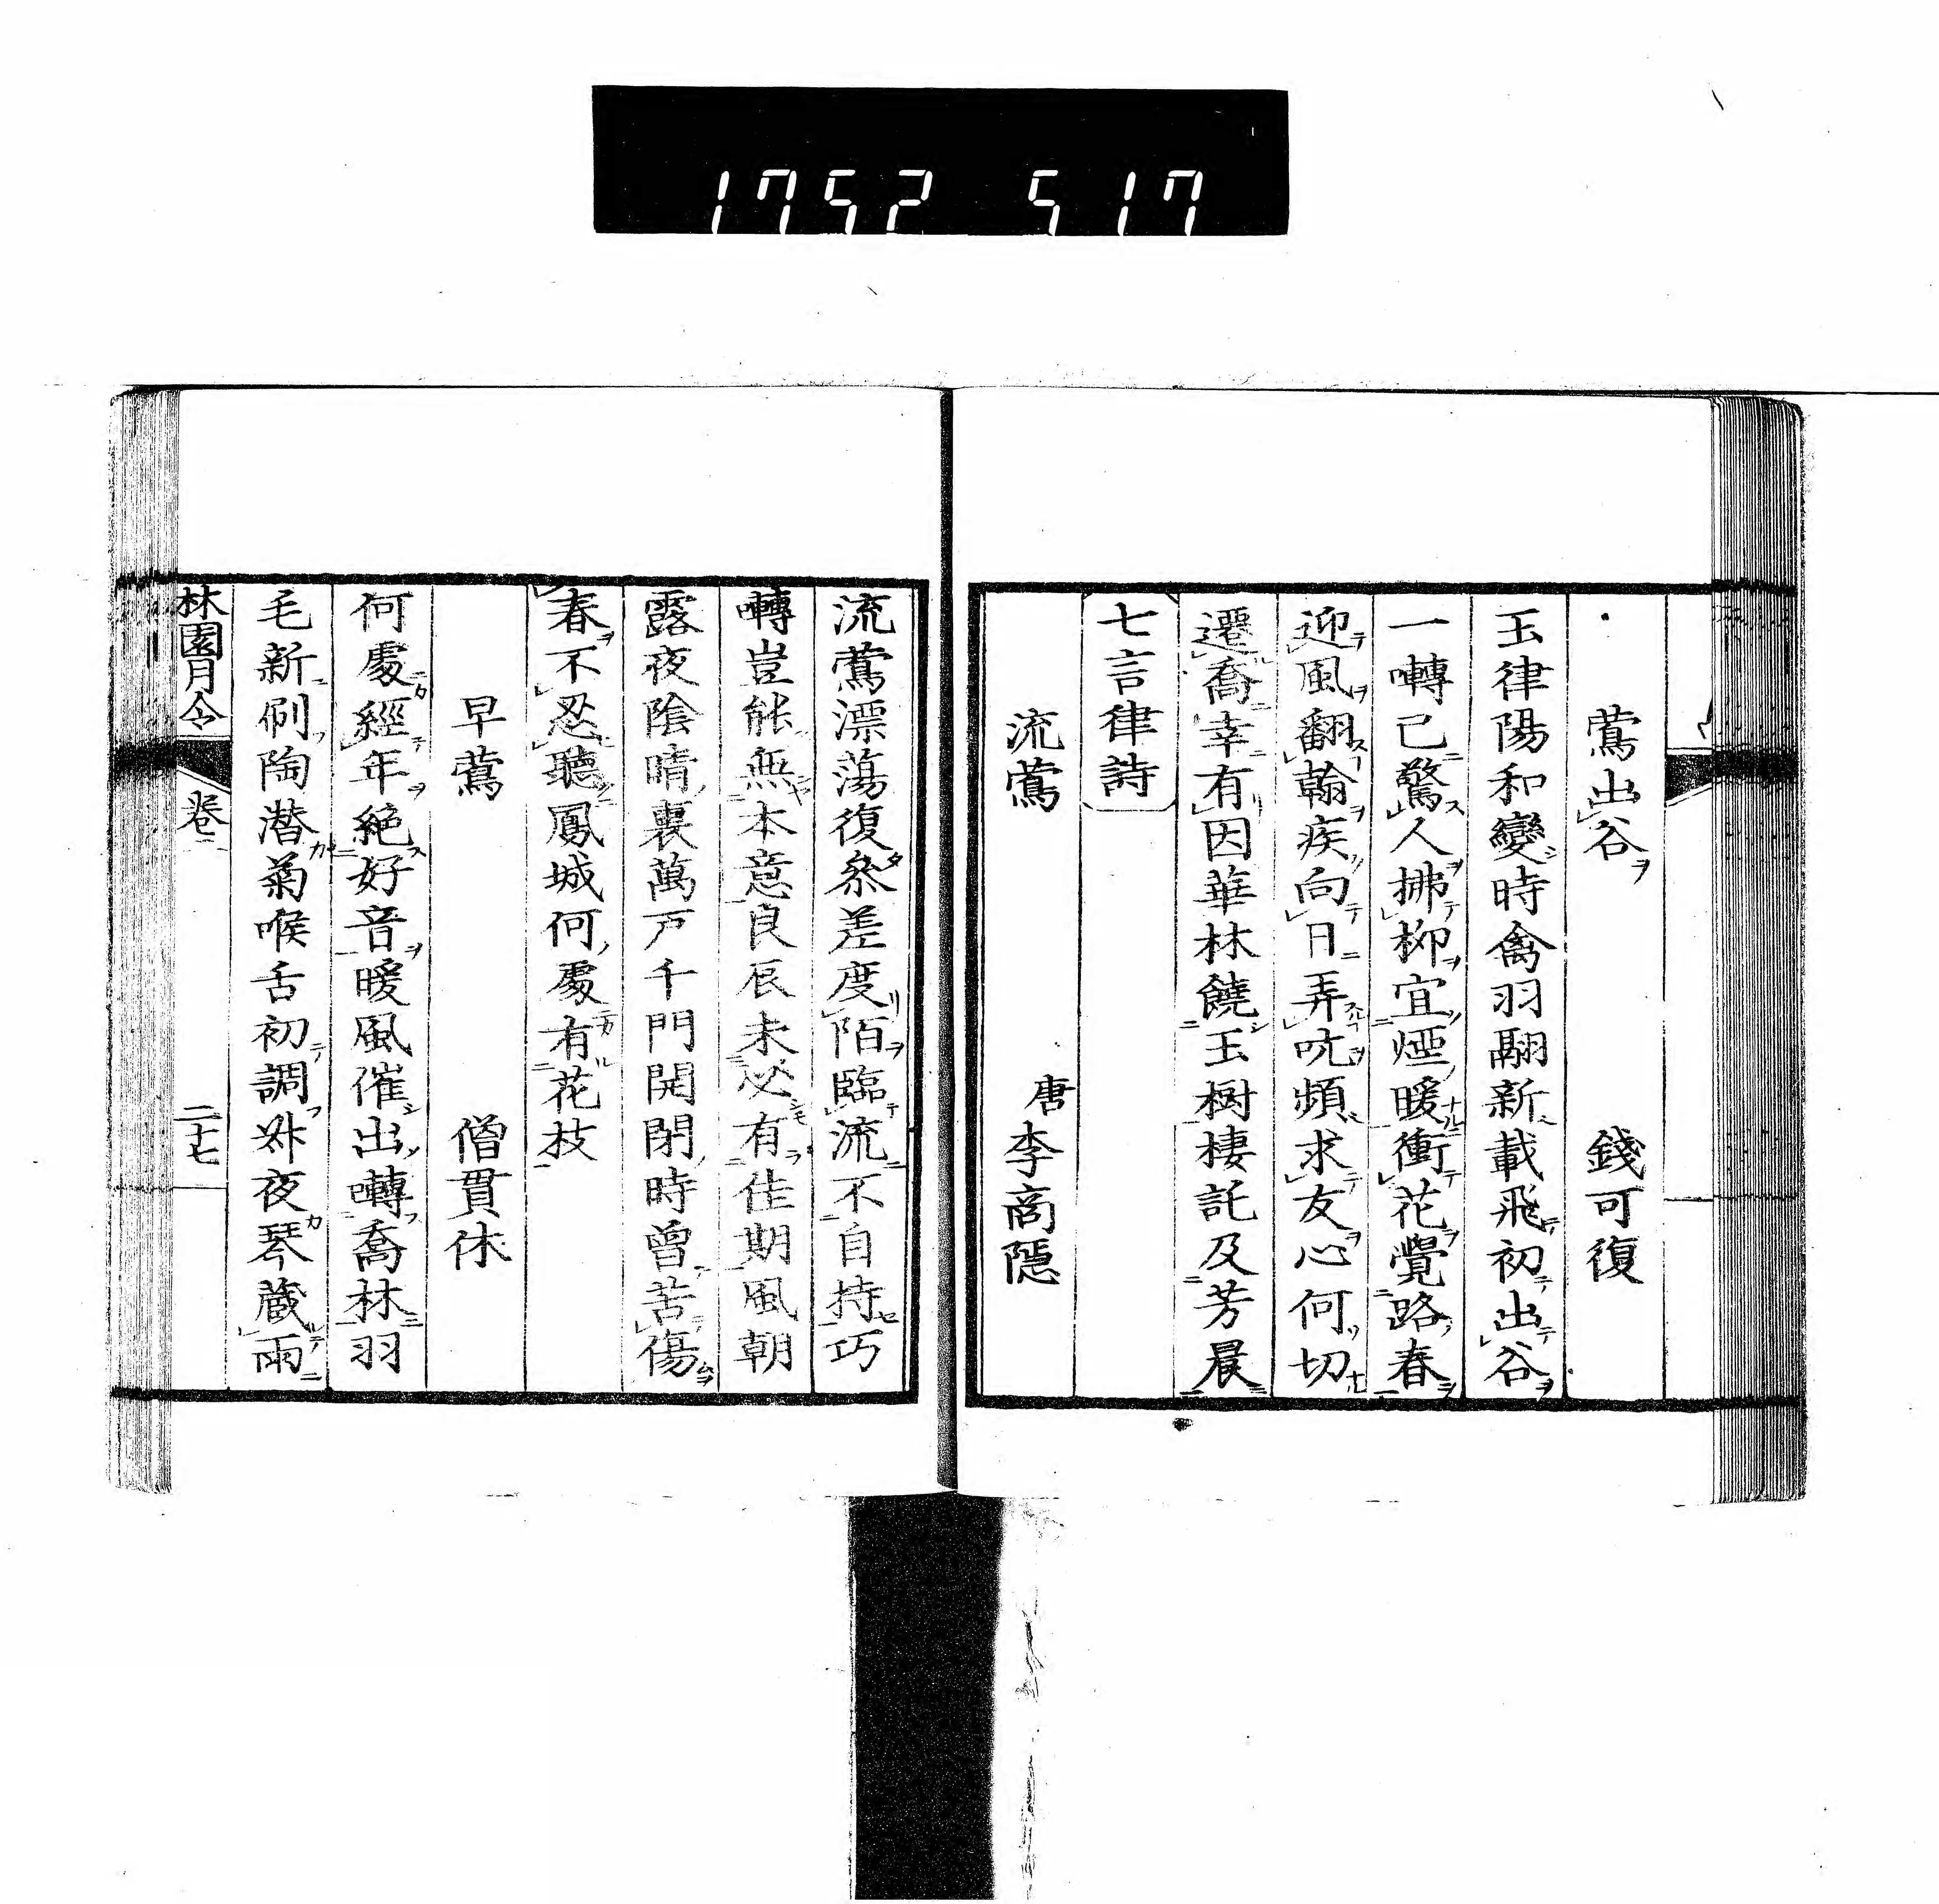 1752 517
鶯出谷 錢可復
玉律陽和變時禽羽翮新載飛初出谷
一囀已驚人拂柳宜煙暖衝花覺路春
迎風翻翰疾向日弄吭頻求友心何切
遷喬幸有因華林饒玉樹棲託及芳晨
七言律詩
流鶯 唐李商隱
流鶯漂蕩復參差度陌臨流不自持巧
囀豈能無本意良辰未必有佳期風朝
露夜陰晴裏萬戶千門開閉時曾苦傷
春不忍聽鳳城何處有花枝
早鶯 僧貫休
何處經年絶好音暖風催出囀喬林羽
毛新刷陶潛菊喉舌初調叔夜琴藏雨
林園月令 卷二 二十七